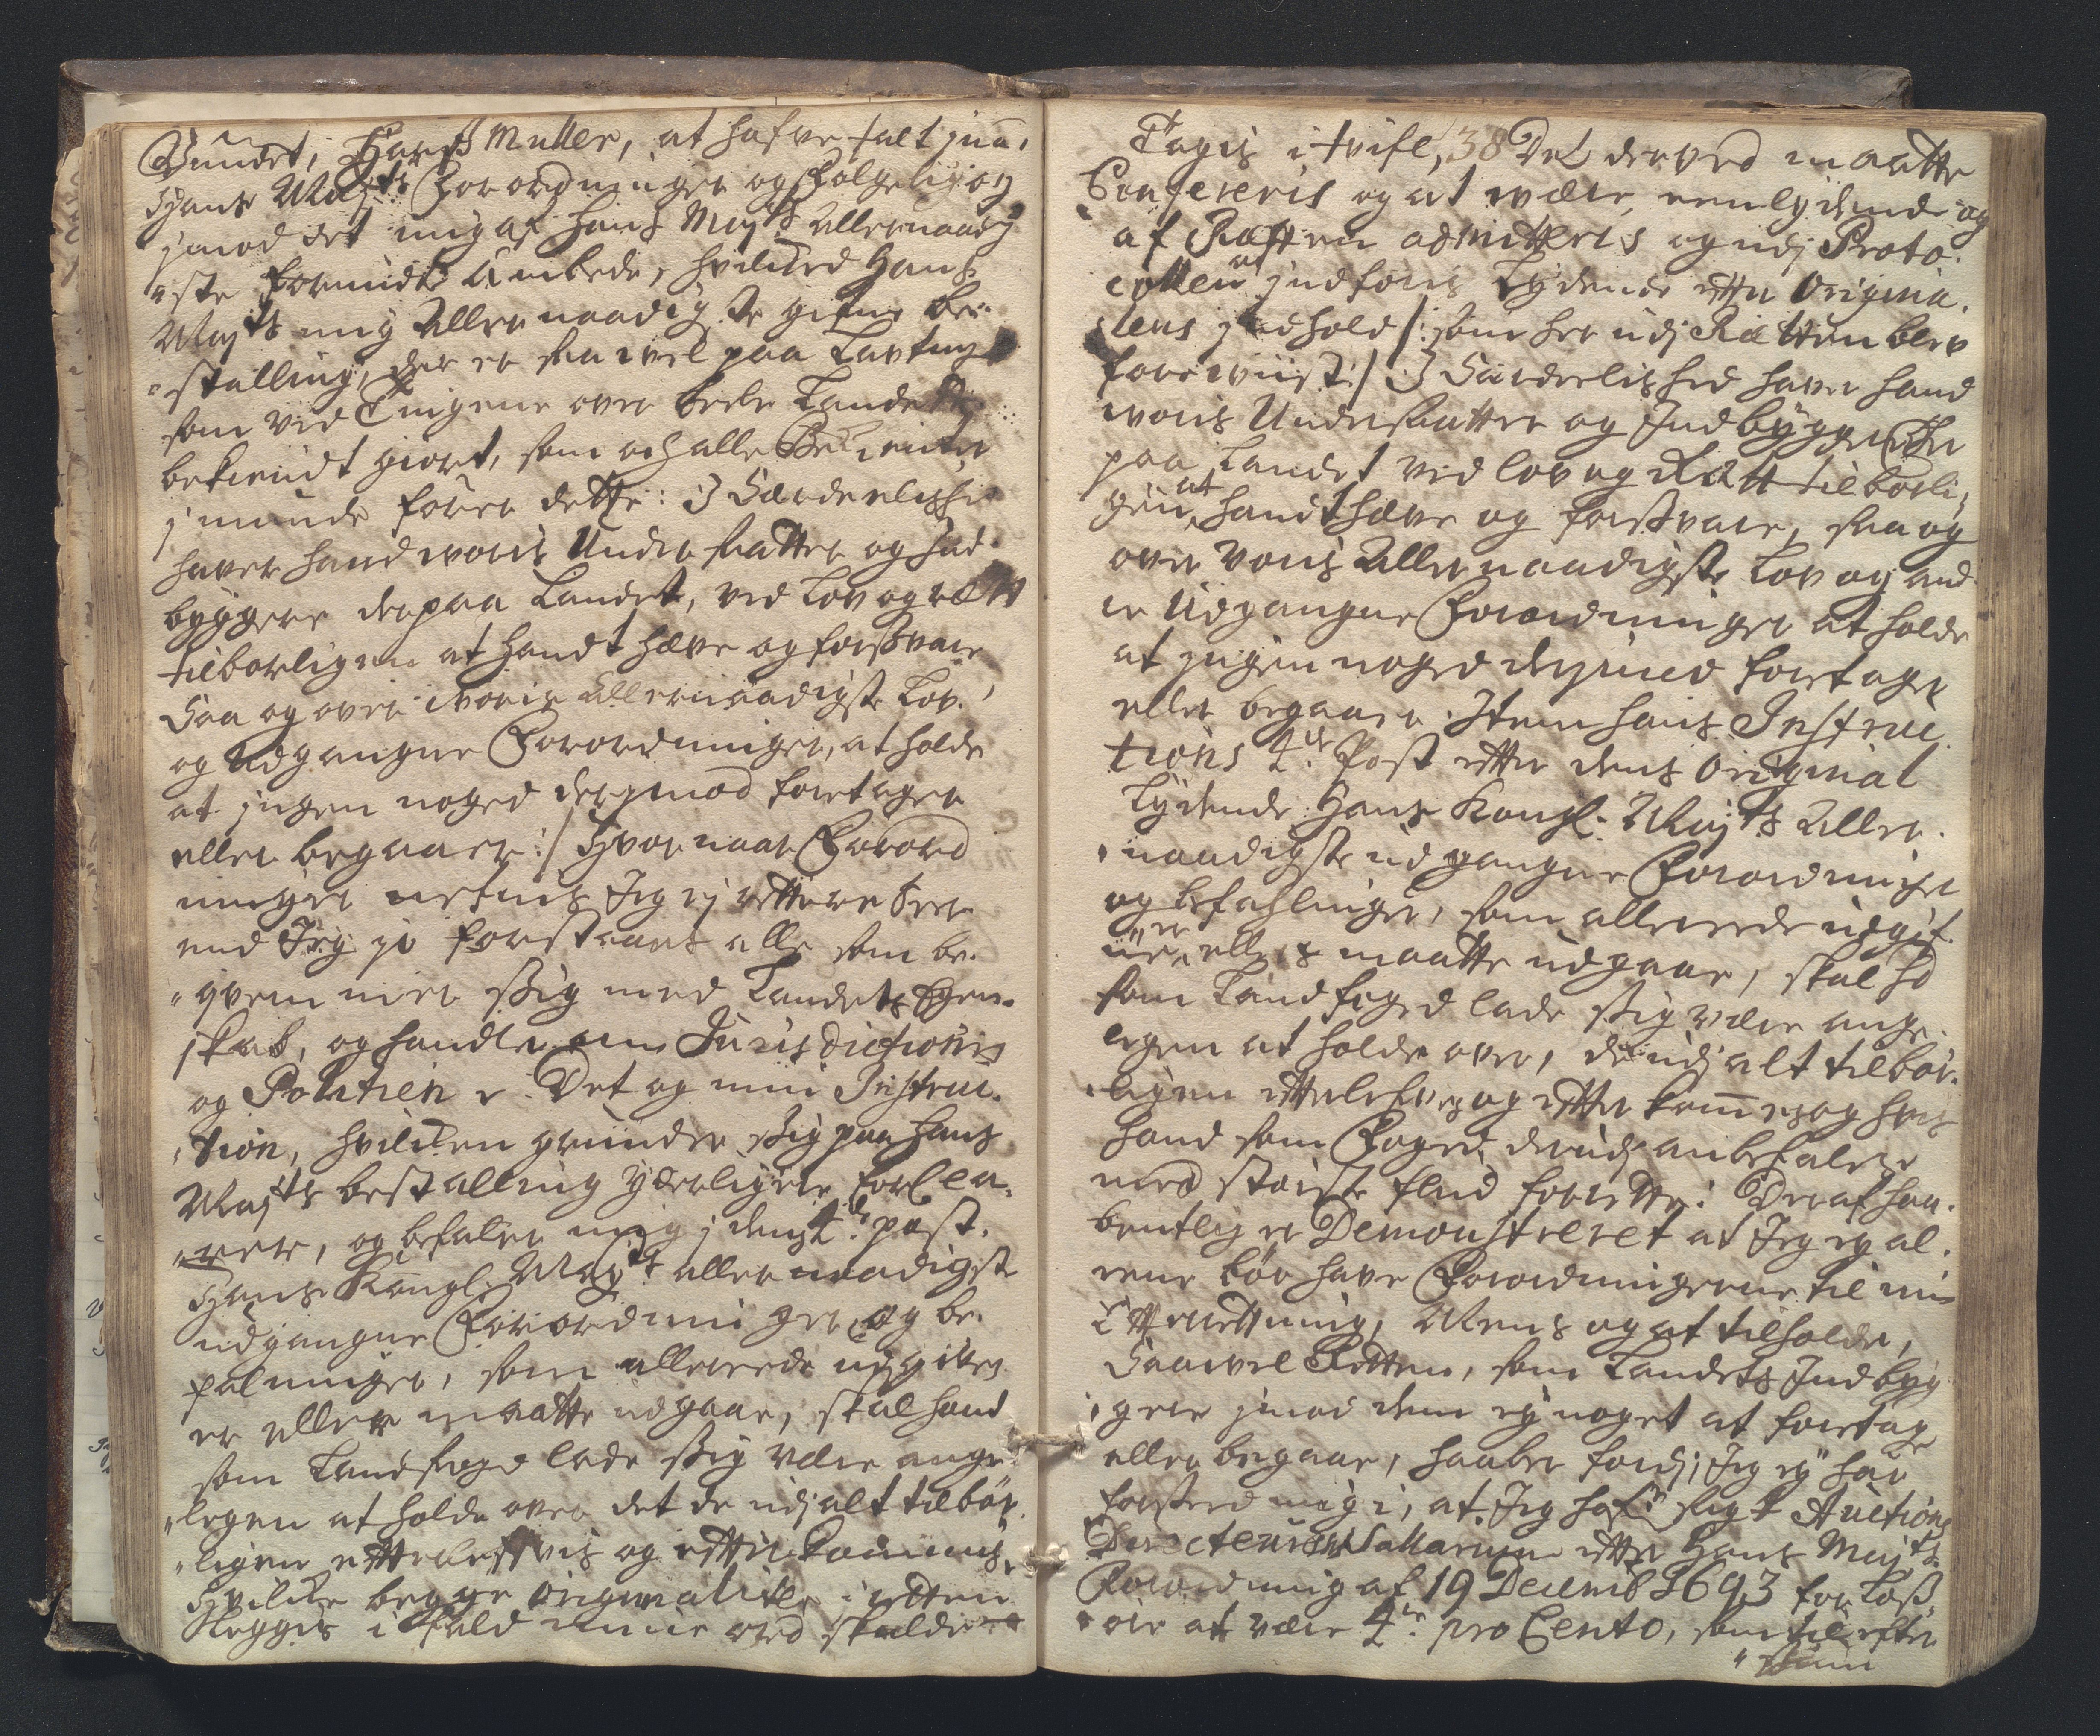 Bundet, Hans Muller, at hafve talt imod
Hans Maj:ts Forordninger og Følgelig og
imod det mig af Hans Maj:ts allernaadig
ste formidte Embede, hvilcked Hans
Maj:ts mig Allernaadigste gifne be-
stalling, der er saa vel paa Lavting
som ved Tingene over heele Landet
bekiendt giort, som och alle Betiente
i munde fører dette: I Særdelished
haver hand woris Undersaatter og Ind-
byggere der paa Landet, ved Lov og rætt
tilbørligen at handthæve og forßvare
Saa og over woris Allernaadigste Lov
og Udgangne Forordninger, at holde
at ingen noged der imod foretager
eller begaaer:/ Hvor naar Forord
ninger nefnis Jeg ej rettere veed
end Jeg jo forstaaer alle som be-
qvemmer sig med Landets Egen-
skab, og handler om Jurisdictionen
og Politien. Det og min Instruc-
tion, hvilcken grunder sig paa Hans
Maj:ts bestalling yderligere forkla-
rer, og befaler mig i dens 2de post.
Hans Kongl: Maj:ts allernaadigst
udgangne Forordninger og be-
falninger, som allereede udgifven
er eller maatte udgaae, skal hand
som Landfoged lade sig være ange-
legen at holde over det de udj alt tilbør-
ligen efterlefvis og efterkommis,
Hvilcke begge originaliter i retten
legges i fald mine ord skulde
Tages i tvifl, 38 Det derved maatte
Confereris og at være eenlydende og
af Rætten admitteris og udj Proto-
collen at jndføris Lydende efter Origina-
lens jndhold /: som her udj Rætten blev
forewiist:/ I Særdelished haver hand
woris Undersaatter og Indbyggere der
paa Landet ved lov og Rætt tilbørli-
gen at handthæve og forßvare, saa og
over voris Allernaadigste Lov og and
re Udgangne Forordninger at holde
at jngen noged derjmod foretager
eller begaaer. Item hans Instruc-
tions 2de Post efter dens Original
Lydende: Hans Kongl: Maj:ts Aller-
naadigste udgangne Forordninger
og befahlinger, som allereede udgif-
ne er eller maatte udgaae, skal hd
som Landfoged lade sig være ange-
legen at holde over, de udj alt tilbør-
ligen efterlefves og efterkommes og hvis
hand som Foged derudj anbefales
med størst flid forrette: Deraf haa-
bentlig er Demonstreret at Jeg ej al-
lene bør have Forordningerne til min
Efterretning, Mens og at tilholde,
Saavel Retten, som Landets Indbyg
gere jmod dem ej noget at foretage
eller begaae, haaber fordj, Jeg ej har
forseed mig i, at Jeg hafr sagt Auctions
Directeurens Sallarium efter Hans Maj:ts
Forordning af 19 Decemb 1693 for Løß-
øre at være 4re pro Cento, som til efter